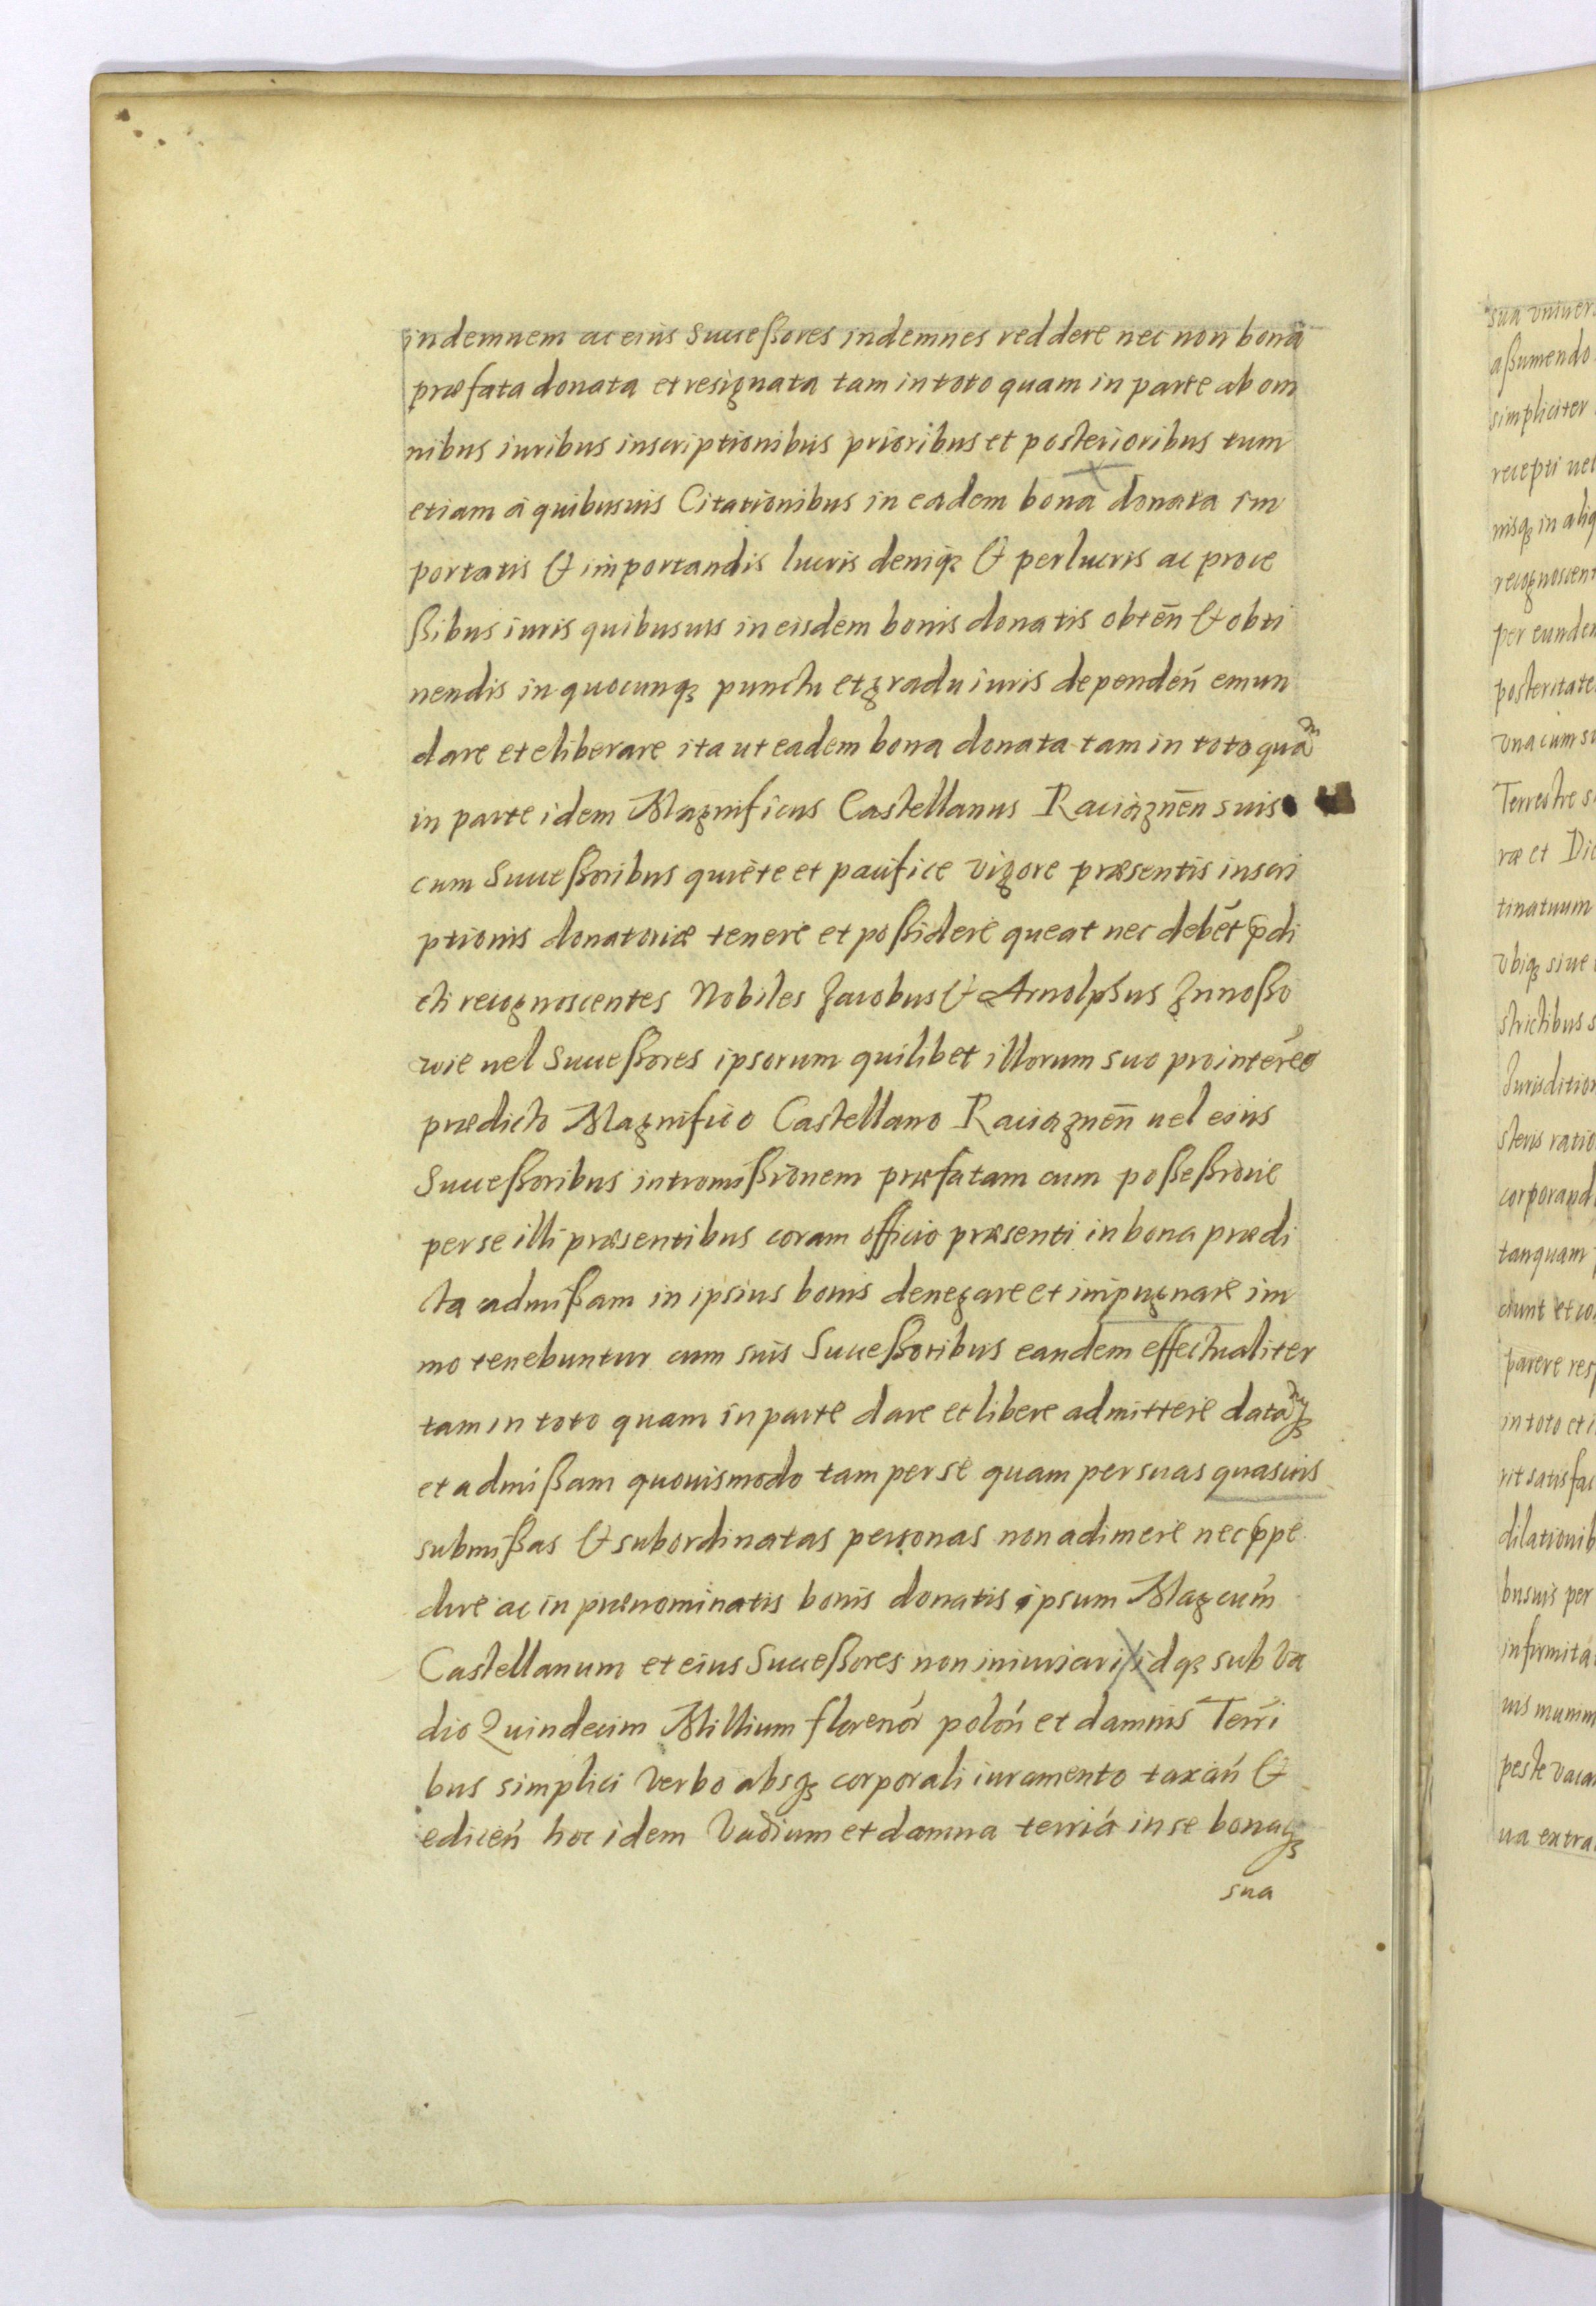 indemnem ac eius Succeßores indemnes reddere nec non bona
præfata donata et resignata tam in toto quam in parte ab om
nibus iuribus inscriptionibus prioribus et posterioribus tum
etiam á quibusuis Citationibus in eadem bona donata im
portatis & importandis lucris deniqꝫ & perlucris ac proce
ßibus iuris quibusuis in eisdem bonis donatis obteñ & obti
nendis in quocunqꝫ punctu et gradu iuris dependeñ emun
dare et eliberare ita ut eadem bona donata tam in toto quam
in parte idem Magnificus Castellanus Raciązneñ suis
cum Succeßoribus quiete et pacifice vigore præsentis inscri
ptionis donatoriæ tenere et poßidere queat nec debét p̄di
cti recognoscentes Nobiles Jacobus & Arnolphus Gnnoßo
wie uel Succeßores ipsorum quilibet illorum suo pro interee
prædicto Magnifico Castellano Raciązneñ uel eius
Succeßoribus intromißionem præfatam cum poßeßione
per se illi præsentibus coram officio præsenti in bona prædi
cta admißam in ipsius bonis denegare et impugnare im
mo tenebuntur cum suis Succeßoribus eandem effectualiter
tam in toto quam in parte dare et libere admittere datamqꝫ
et admißam quouismodo tam per se quam per suas quasuis
submißas & subordinatas personas non adimere nec p̄pe
dire ac in prænominatis bonis donatis ipsum Magcum̃
Castellanum et eius Succeßores non iniuriari idqꝫ sub Va
dio Quindecim Millium florenoꝝ poloń et damnis Terri
bus simplici Verbo absqꝫ corporali iuramento taxań &
ediceń hoc idem Vadium et damna terriá in se bonaqꝫ
sua
sua vniuer
aßumendo
simpliciter
recepti uel
nisqꝫ in aliq
recognoscent
per eundem
posteritate
vna cum su
Terrestre s
ræ et Dic
tinatuum
vbiqꝫ siue
strictibus s
Jurisdition
steris ratio
corporand
tanquam
dunt et co
parere res
in toto et i
rit satisfac
dilationib
busuis per
infirmita
uis munim
peste vaca
ua extra